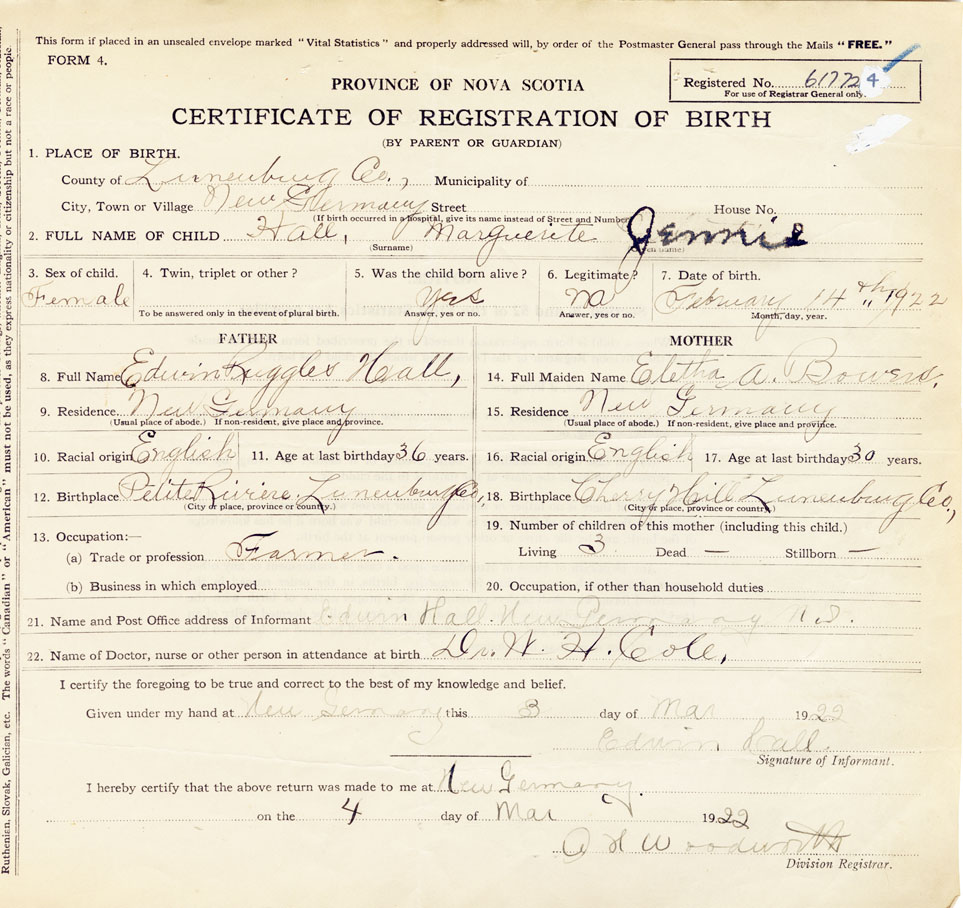 This form if placed in an unsealed envelope marked "Vital Statistics" and properly addressed will, by order of the Postmaster General pass through the Mails "FREE."
FORM 4.
PROVINCE OF NOVA SCOTIA
Registered No. 61772 4
For use of Registrar General only.
CERTIFICATE OF REGISTRATION OF BIRTH
(BY PARENT OR GUARDIAN)
1. PLACE OF BIRTH.
County of Lunenburg Co., Municipality of
City, Town or Village New Germany Street House No.
(If birth occurred in a hospital, give its name instead of Street and Number)
2. FULL NAME OF CHILD Hall, Marguerite Jennie
(Surname) (Given name)
3. Sex of child. 4. Twin, triplet or other? 5. Was the child born alive? 6. Legitimate? 7. Date of birth.
Female Yes No February 14th, 1922
To be answered only in the event of plural birth. Answer, yes or no. Answer, yes or no. Month, day, year.
FATHER MOTHER
8. Full Name Edwin Ruggles Hall, 14. Full Maiden Name Eletha A. Bowers,
9. Residence New Germany 15. Residence New Germany
(Usual place of abode.) If non-resident, give place and province. (Usual place of abode.) If non-resident, give place and province.
10. Racial origin English 11. Age at last birthday 36 years. 16. Racial origin English 17. Age at last birthday 30 years.
12. Birthplace Petite Riviere, Lunenburg Co, 18. Birthplace Cherry Hill Lunenburg Co.,
(City or place, province or country.) (City or place, province or country)
19. Number of children of this mother (including this child.)
13. Occupation:—
Living 3 Dead — Stillborn —
(a) Trade or profession Farmer.
(b) Business in which employed 20. Occupation, if other than household duties
21. Name and Post Office address of Informant Edwin Hall. New Germany N.S.
22. Name of Doctor, nurse or other person in attendance at birth Dr. W. H. Cole,
I certify the foregoing to be true and correct to the best of my knowledge and belief.
Given under my hand at New Germany this 3 day of Mar 1922
Edwin Hall.
Signature of Informant.
I hereby certify that the above return was made to me at New Germany.
on the 4 day of Mar 1922
Woodworth
Division Registrar.
Ruthenian, Slovak, Galician, etc. The words "Canadian" or "American" must not be used, as they express nationality or citizenship but not a race or people.